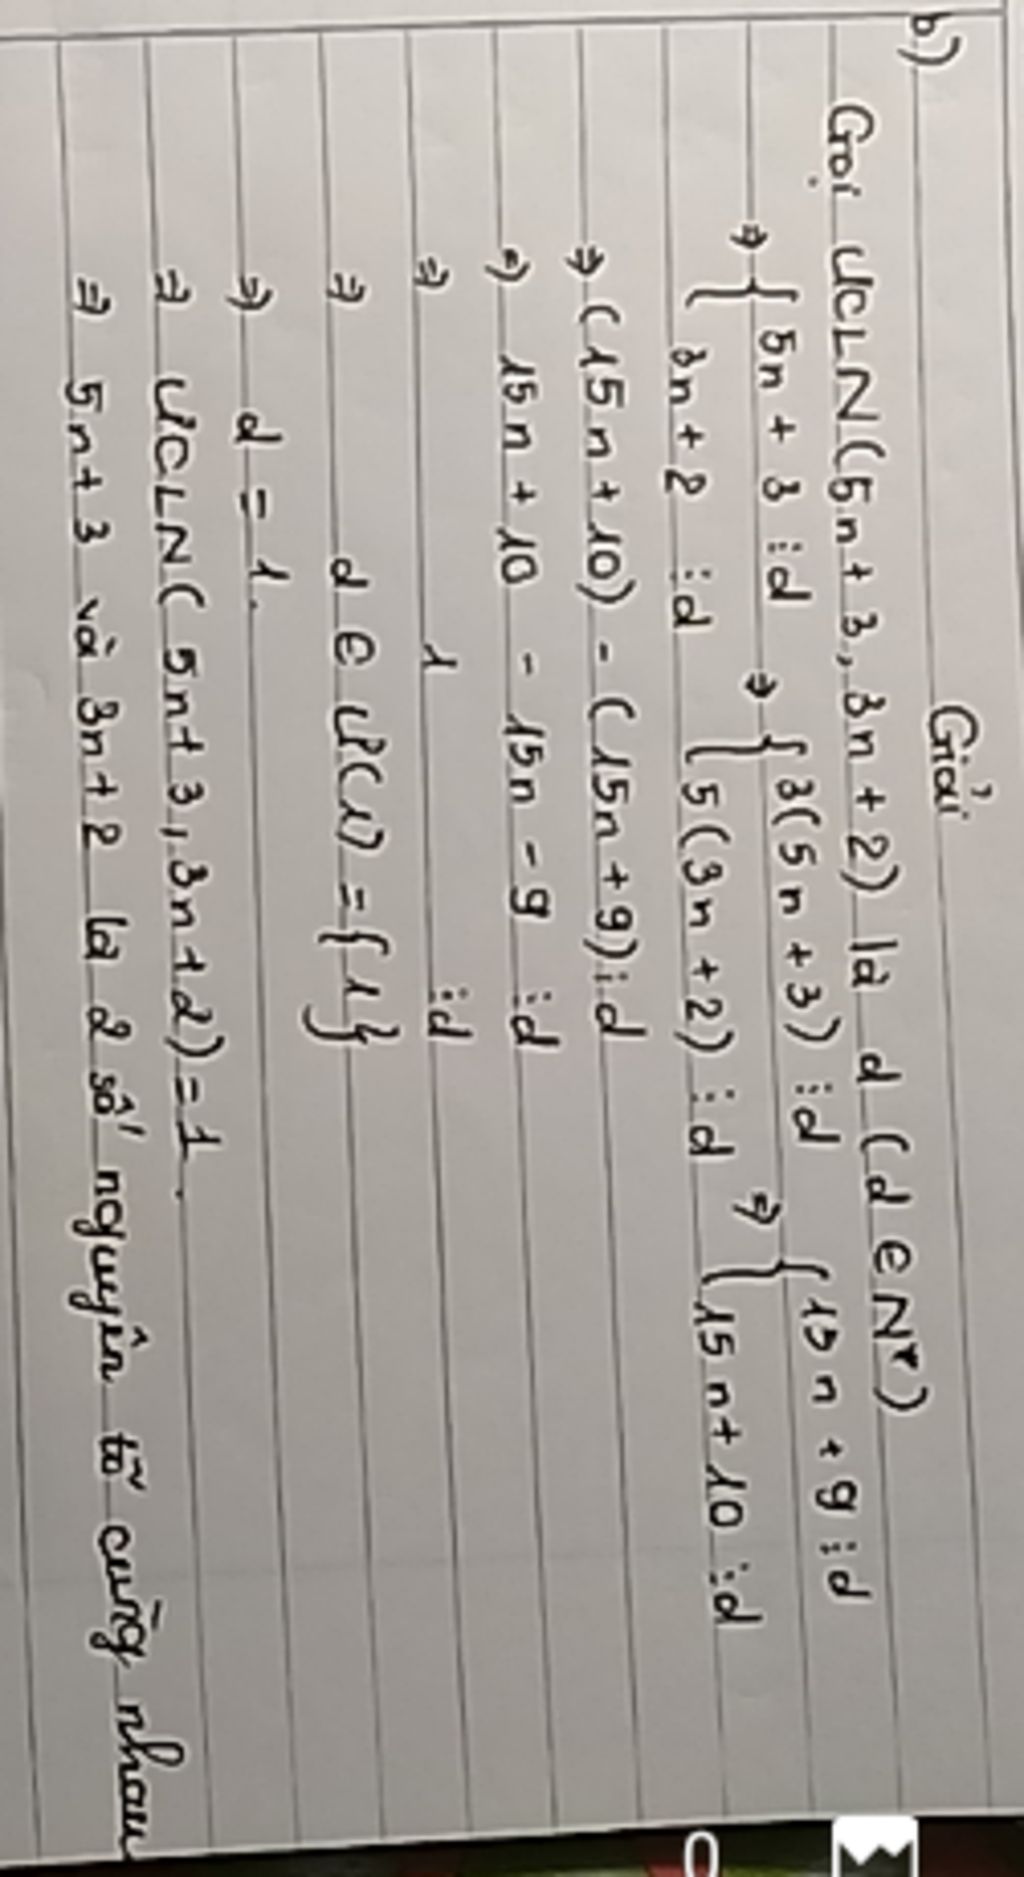 b)
Giải
Gọi ƯCLN(5n+3, 3n+2) là d (d ∈ N*)
⇒ { 5n + 3 ⋮ d ⇒ { 3(5n+3) ⋮ d ⇒ { 15n + 9 ⋮ d
{ 3n + 2 ⋮ d { 5(3n+2) ⋮ d { 15n + 10 ⋮ d
⇒ (15n+10) - (15n+9) ⋮ d
⇒ 15n + 10 - 15n - 9 ⋮ d
⇒ 1 ⋮ d
⇒ d ∈ Ư(1) = {1}
⇒ d = 1.
⇒ ƯCLN(5n+3, 3n+2) = 1.
⇒ 5n+3 và 3n+2 là 2 số nguyên tố cùng nhau